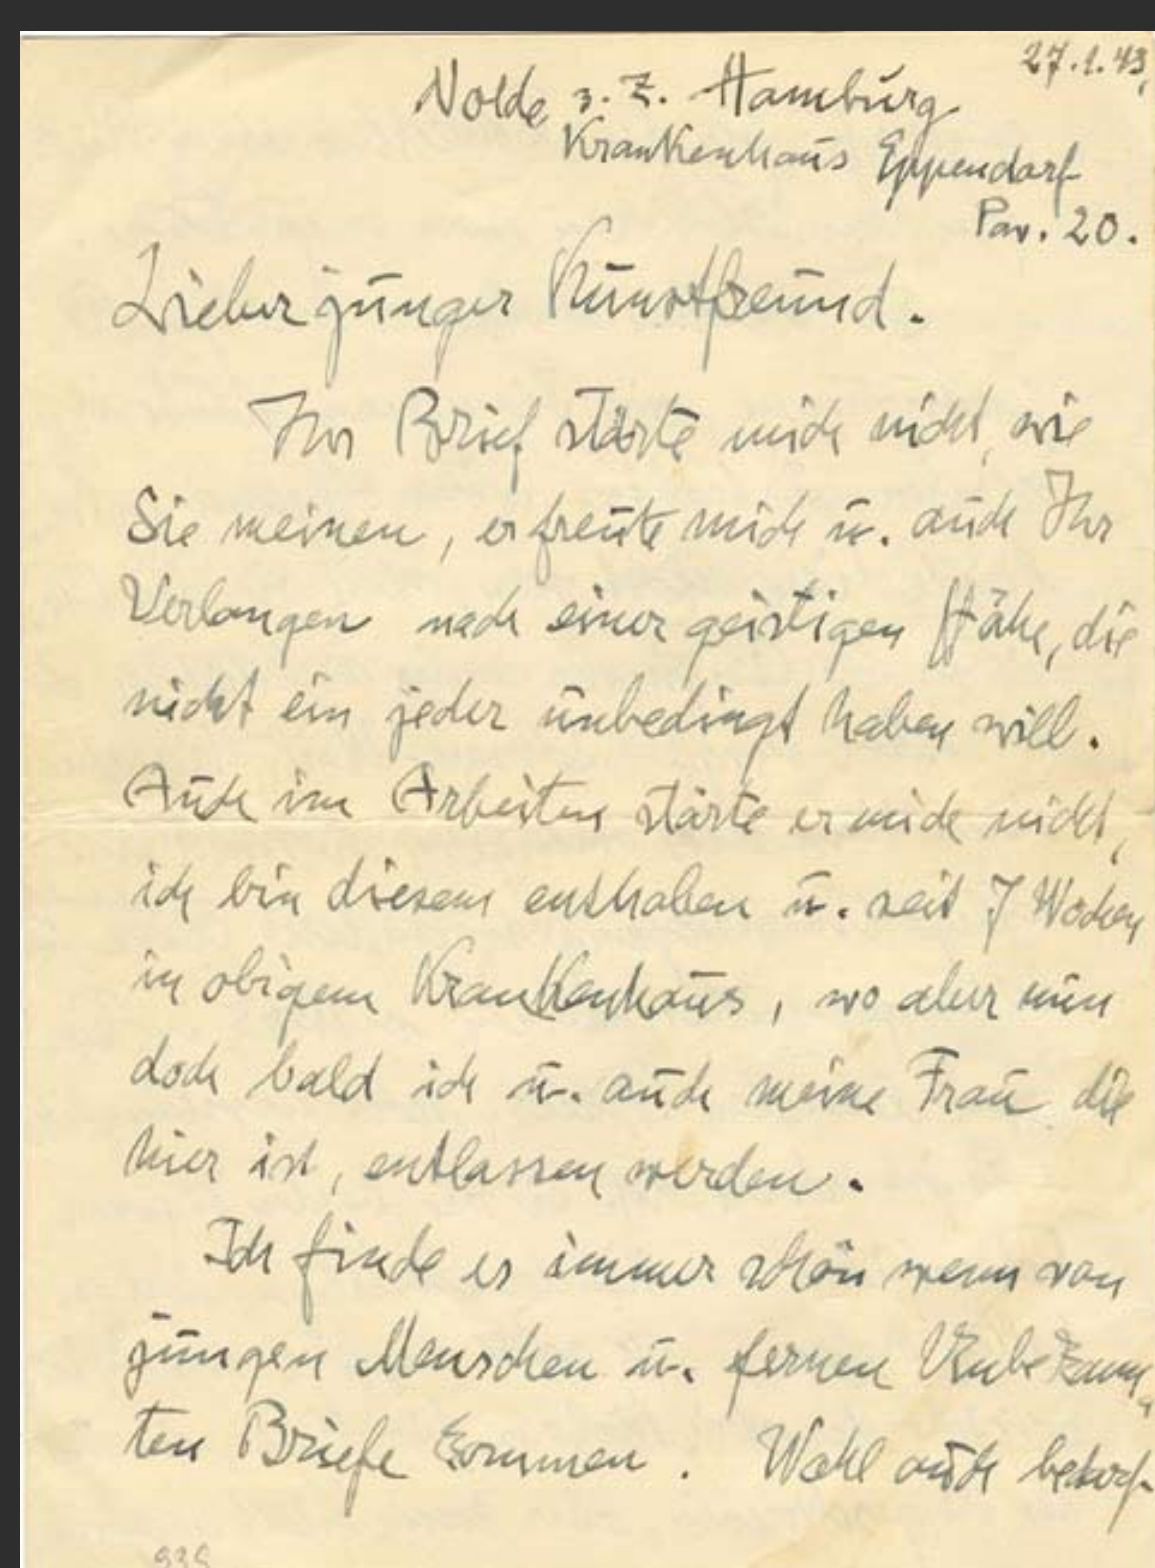 27.1.43,
Nolde z. Z. Hamburg
Krankenhaus Eppendorf
Pav. 20.
Lieber junger Kunstfreund.
Ihr Brief störte mich nicht, wie
Sie meinen, er freute mich u. auch Ihr
Verlangen nach einer geistigen Nähe, die
nicht ein jeder unbedingt haben will.
Auch im Arbeiten störte er mich nicht,
ich bin diesem enthoben u. seit 7 Wochen
in obigem Krankenhaus, wo aber nun
doch bald ich u. auch meine Frau die
hier ist, entlassen werden.
Ich finde es immer schön wenn von
jungen Menschen u. fernen Unbekann-
ten Briefe kommen. Wohl auch